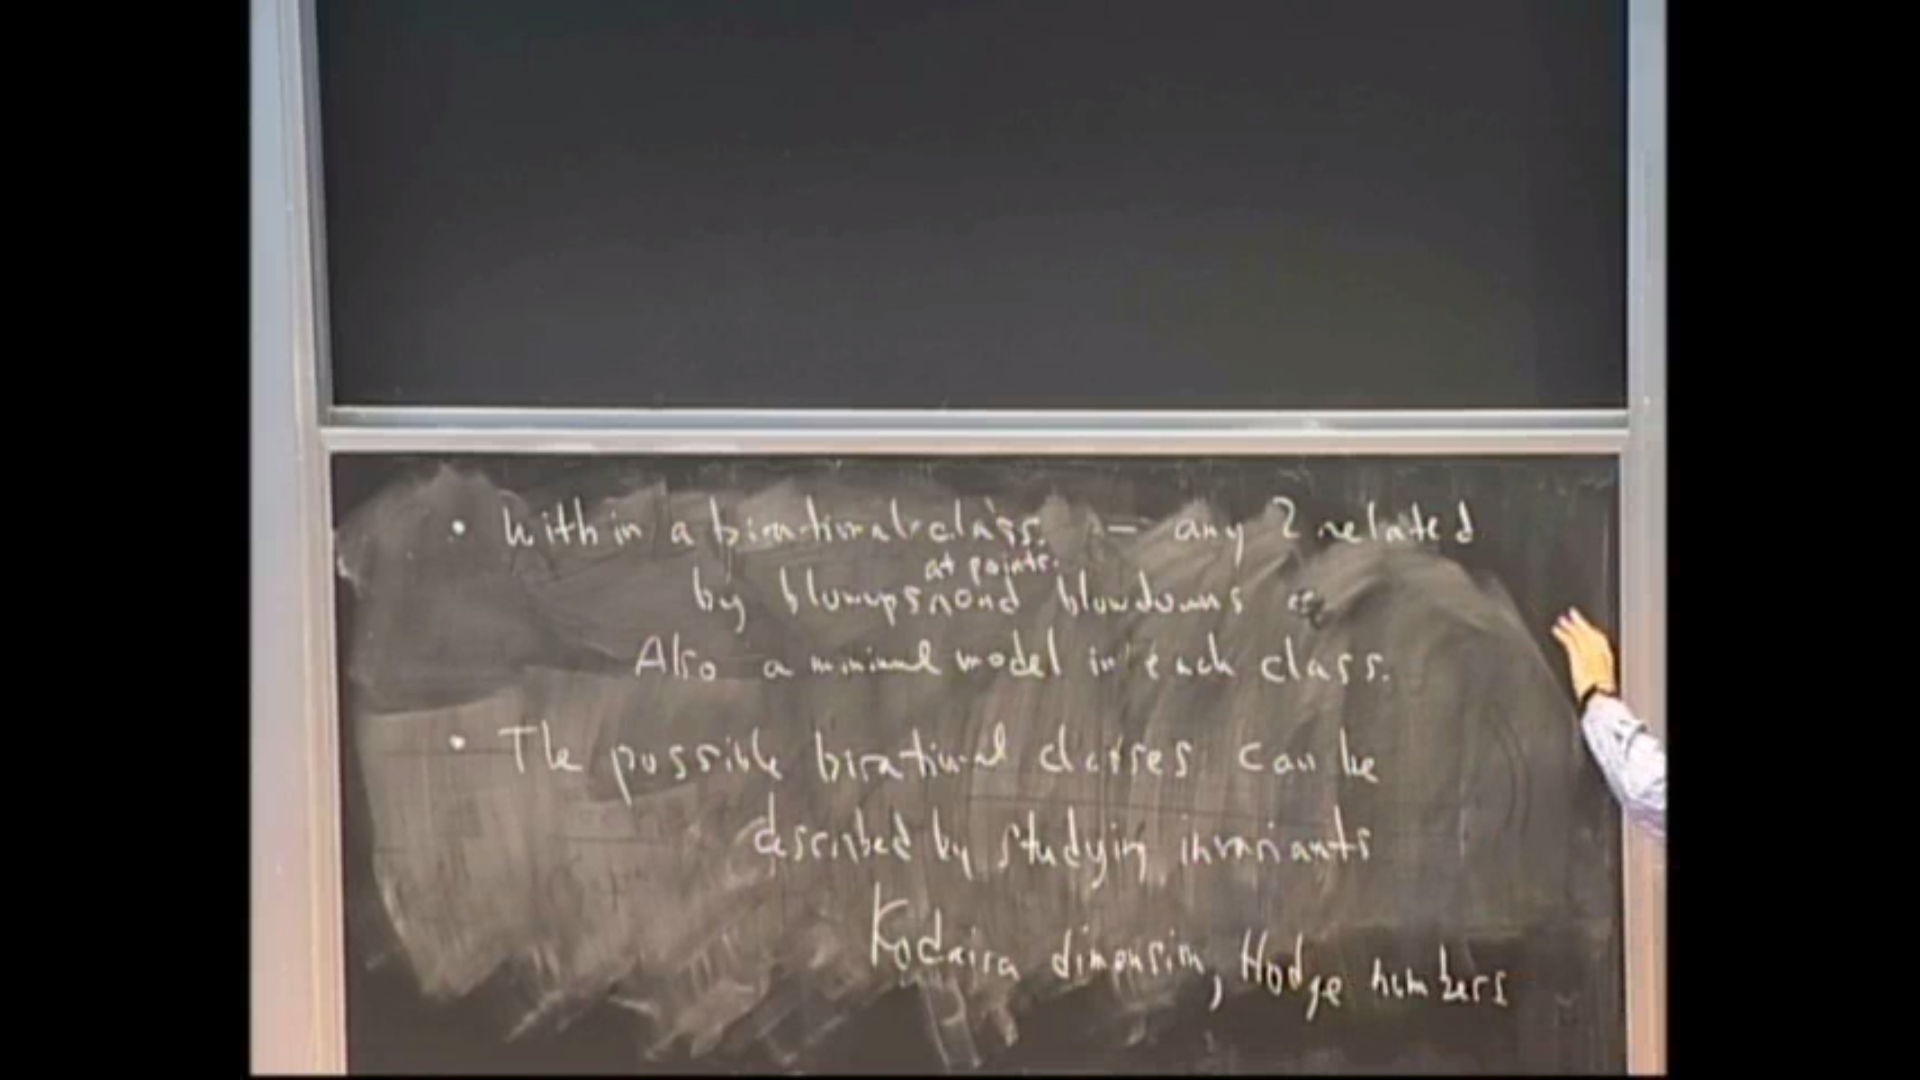 • Within a birational class. — any 2 related
at points.
by blowups and blowdowns
Also a minimal model in each class.
• The possible birational classes can be
described by studying invariants
Kodaira dimension, Hodge numbers